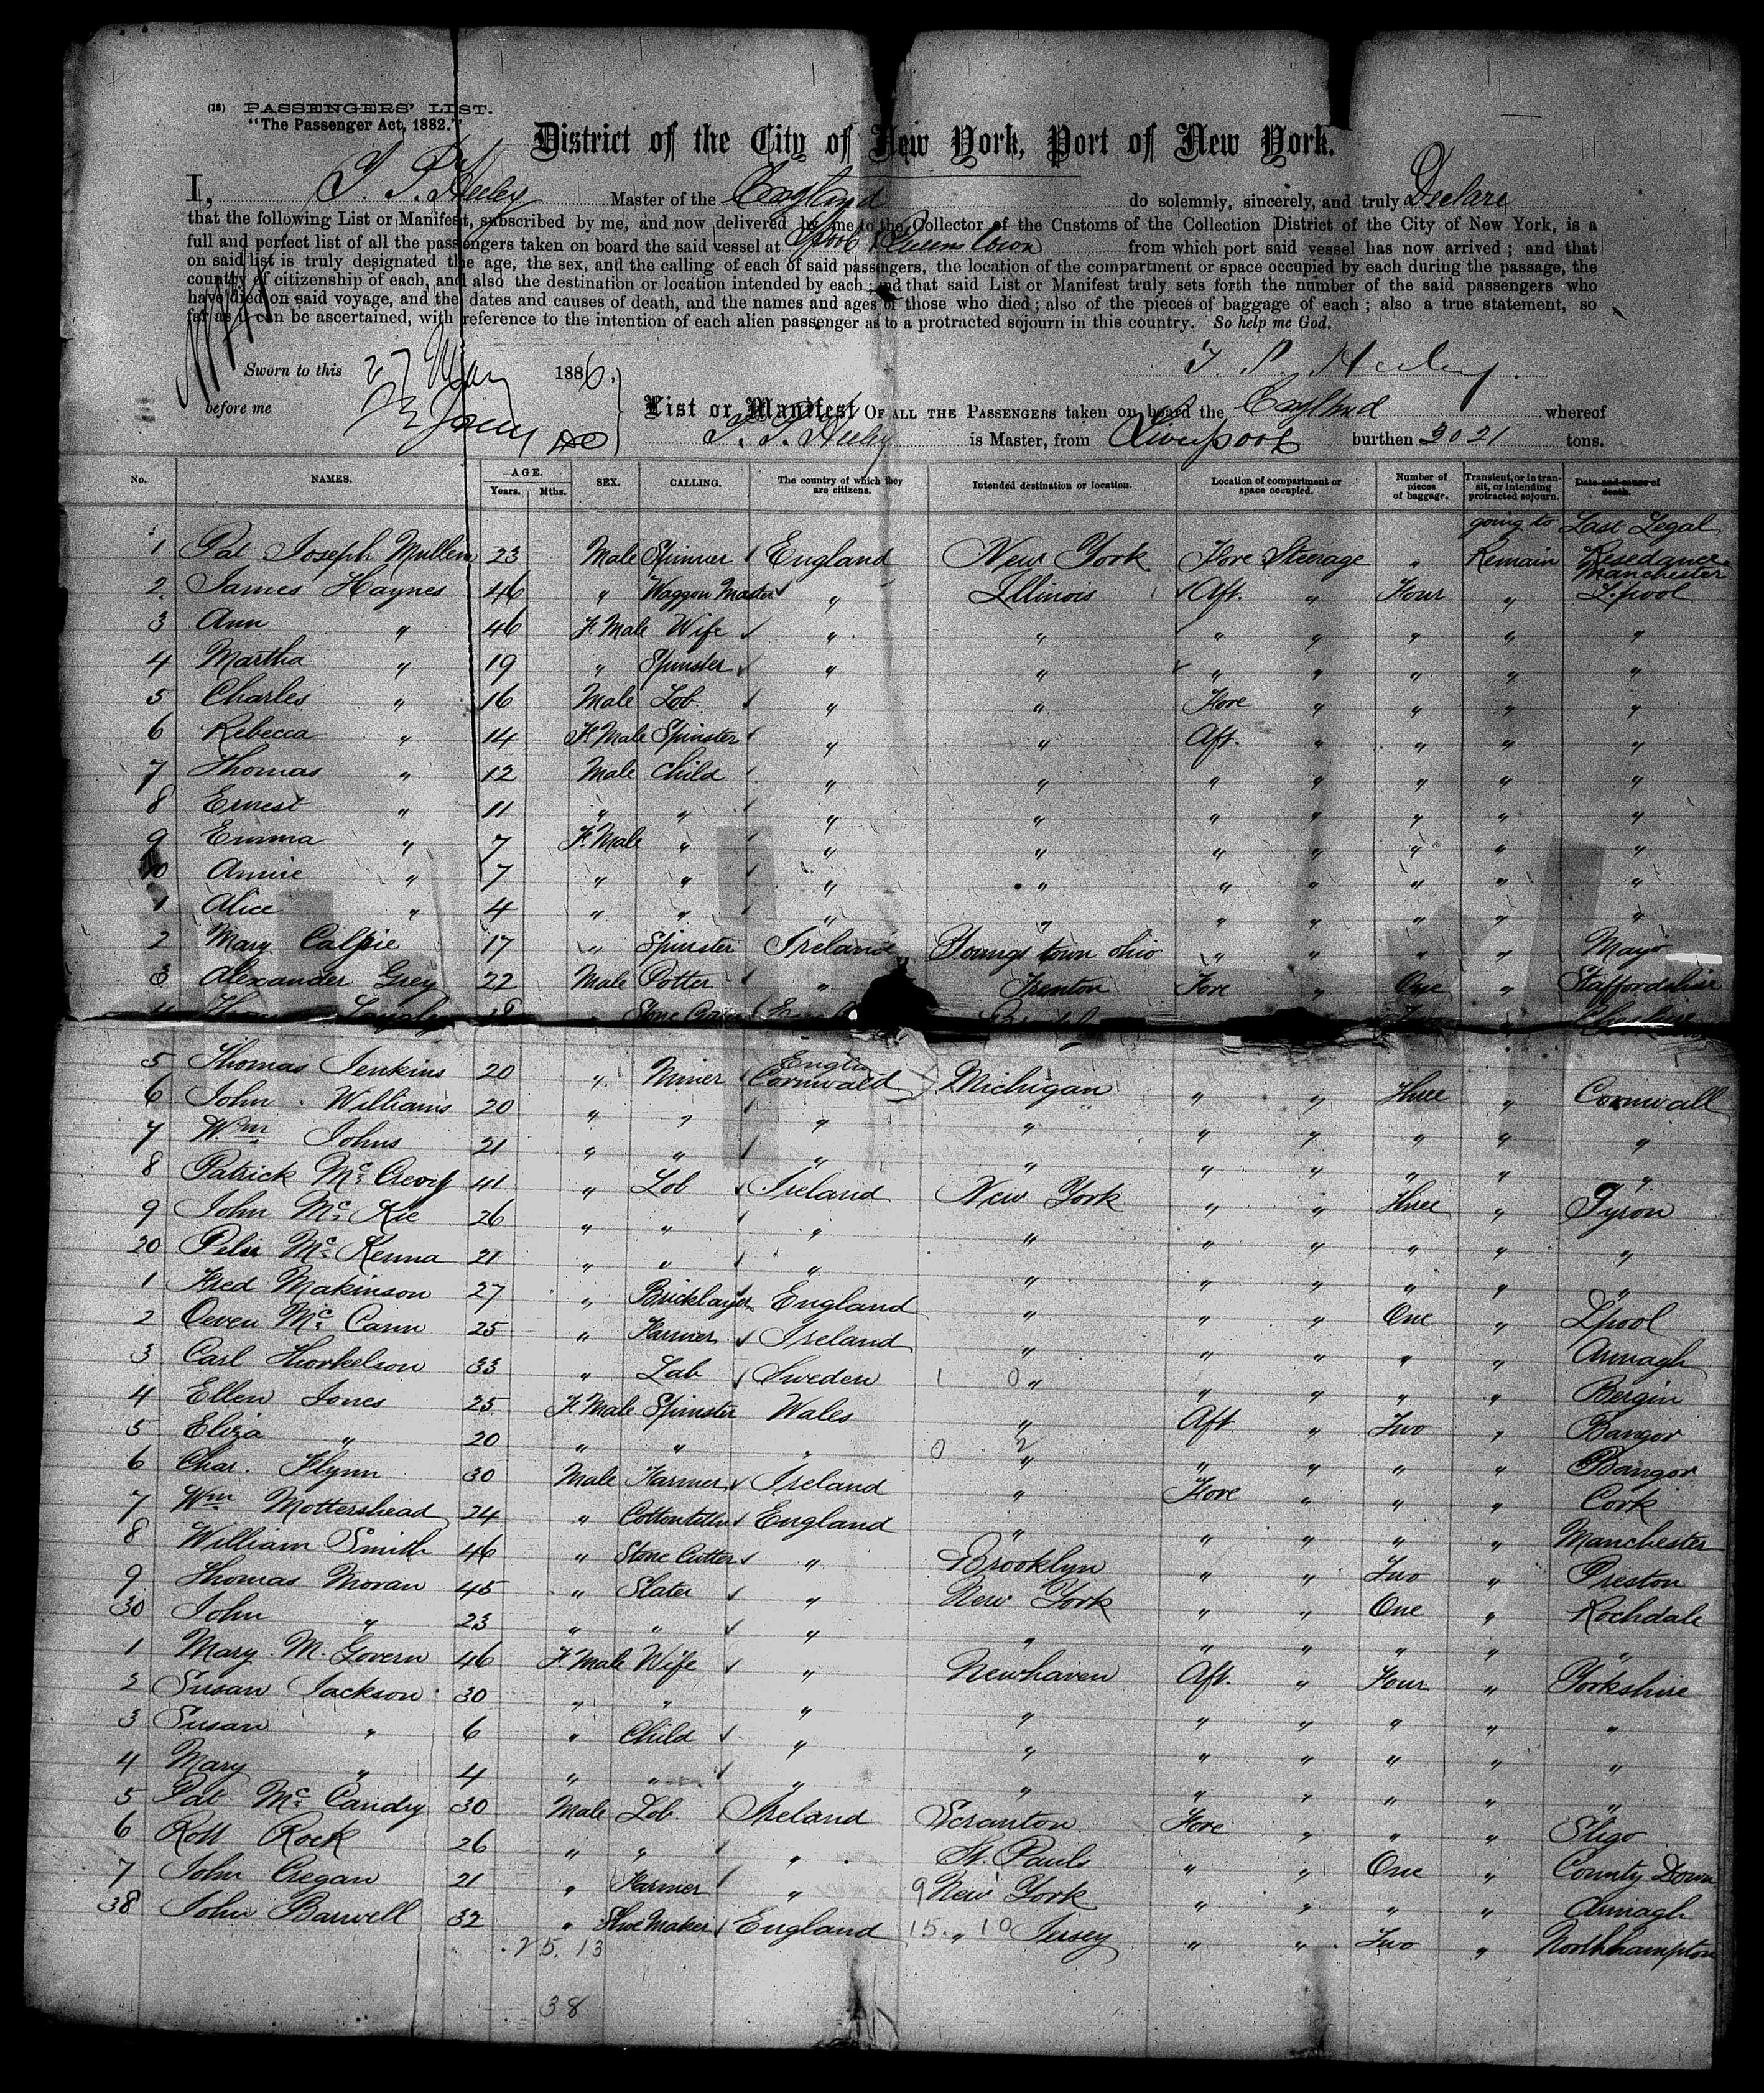 (18) PASSENGERS' LIST.
"The Passenger Act, 1882."
District of the City of New York, Port of New York.
I, T. P. Heeley Master of the England do solemnly, sincerely, and truly Declare
that the following List or Manifest, subscribed by me, and now delivered by me to the Collector of the Customs of the Collection District of the City of New York, is a
full and perfect list of all the passengers taken on board the said vessel at L'pool & Queenstown from which port said vessel has now arrived; and that
on said list is truly designated the age, the sex, and the calling of each of said passengers, the location of the compartment or space occupied by each during the passage, the
country of citizenship of each, and also the destination or location intended by each; and that said List or Manifest truly sets forth the number of the said passengers who
have died on said voyage, and the dates and causes of death, and the names and ages of those who died; also of the pieces of baggage of each; also a true statement, so
far as it can be ascertained, with reference to the intention of each alien passenger as to a protracted sojourn in this country. So help me God.
T. P. Heeley.
Sworn to this 27 May 1886.
before me
List or Manifest OF ALL THE PASSENGERS taken on board the England whereof
T. P. Heeley is Master, from Liverpool burthen 3021 tons.
No. NAMES. AGE. Years. Mths. SEX. CALLING. The country of which they are citizens. Intended destination or location. Location of compartment or space occupied. Number of pieces of baggage. Transient, or in transit, or intending protracted sojourn. Date and cause of death.
going to Last Legal
1 Pat Joseph Mullen 23 Male Spinner England New York Fore Steerage " Remain Resedance Manchester
2. James Haynes 46 " Waggon Master " Illinois Aft. " Four " L'pool
3 Ann " 46 F. Male Wife " " " " " " "
4 Martha " 19 " Spinster " " " " " " "
5 Charles " 16 Male Lob. " " Fore " " " "
6 Rebecca " 14 F. Male Spinster " " Aft. " " " "
7 Thomas " 12 Male Child " " " " " " "
8 Ernest " 11 " " " " " " " " "
9 Emma " 7 F. Male " " " " " " " "
10 Annie " 7 " " " " " " " " "
1 Alice " 4 " " " " " " " " "
2 Mary Calpie 17 " Spinster Ireland Youngs town ohio " " " " Mayo
3 Alexander Grey 22 Male Potter " Trenton Fore " One " Staffordshire
4 18
5 Thomas Jenkins 20 " Miner Cornwald Michigan " " Three " Cornwall
6 John Williams 20 " " " " " " " " "
7 Wm Johns 21 " " " " " " " " "
8 Patrick Mc Crevey 41 " Lob Ireland New York " " Three " Tyron
9 John Mc Kie 26 " " " " " " " " "
20 Peter Mc Kenna 21 " " " " " " " " "
1 Fred Makinson 27 " Bricklayer England " " " One " Lpool
2 Oeven Mc Cann 25 " Farmer Ireland " " " " " Armagh
3 Carl Thorkelson 33 " Lab Sweden 1 0 " " " " " Bergin
4 Ellen Jones 25 F. Male Spinster Wales " Aft. " Two " Bangor
5 Eliza " 20 " " " 0 2 " " " " " Bangor
6 Char. Flynn 30 Male Farmer Ireland " Fore " " " Cork
7 Wm Mottershead 24 " England " " " " " Manchester
8 William Smith 46 " Stone Cutter " Brooklyn " " Two " Preston
9 Thomas Moran 45 " Slater " New York " " One " Rochdale
30 John " 23 " " " " " " " " "
1 Mary M. Govern 46 F. Male Wife " Newhaven Aft. " Four " Yorkshire
2 Susan Jackson 30 " " " " " " " " "
3 Susan " 6 " Child " " " " " " "
4 Mary " 4 " " " " " " " " "
5 Pat Mc Candry 30 Male Lob. Ireland Scranton Fore " " " Sligo
6 Robt Rock 26 " " " St. Pauls " " One " County Down
7 John Cregan 21 " Farmer " 9 New York " " " " Armagh
38 John Barwell 32 " Shoe Maker England 15. 10 " Jersey " " Two " Northhampton
25. 13
38